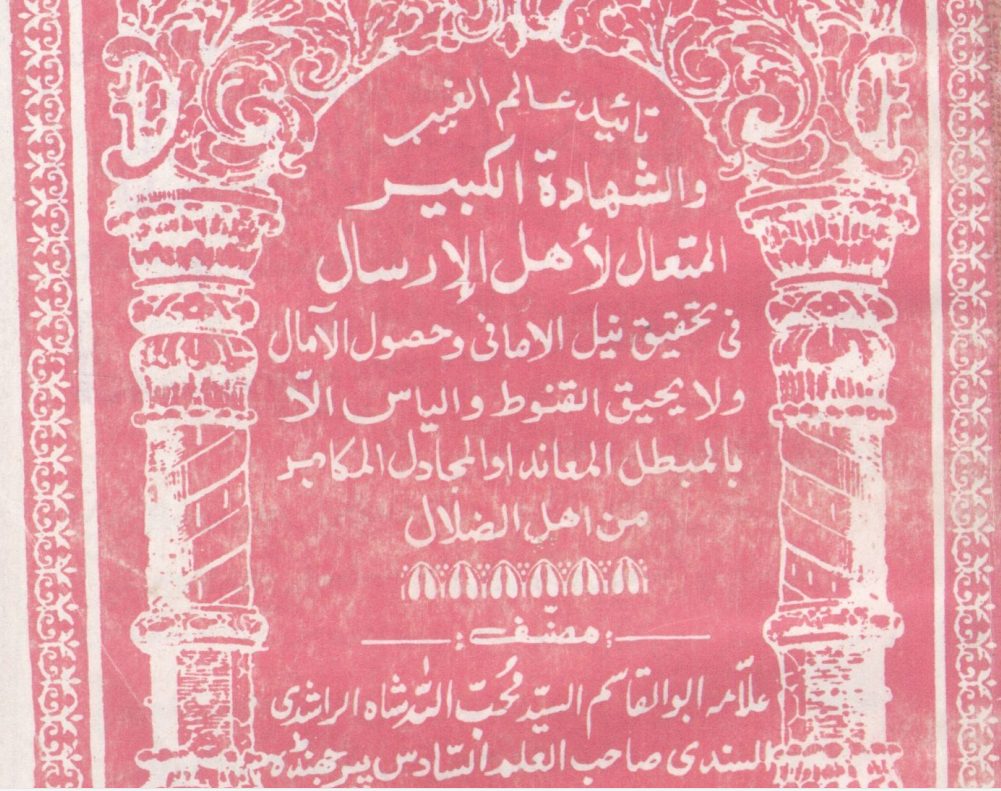 تائيد عالم الغيب
والشهادة الكبير
المتعال لأهل الإرسال
فى تحقيق نيل الامانى وحصول الآمال
ولا يحيق القنوط والياس الّا
بالمبطل المعاند او المجادل المكابر
من اهل الضلال
مصنّف
علّامہ ابو القاسم السيّد مُحبّ اللہ شاہ الراشدى
السندى صاحب العلم السّادس پير جھنڈہ